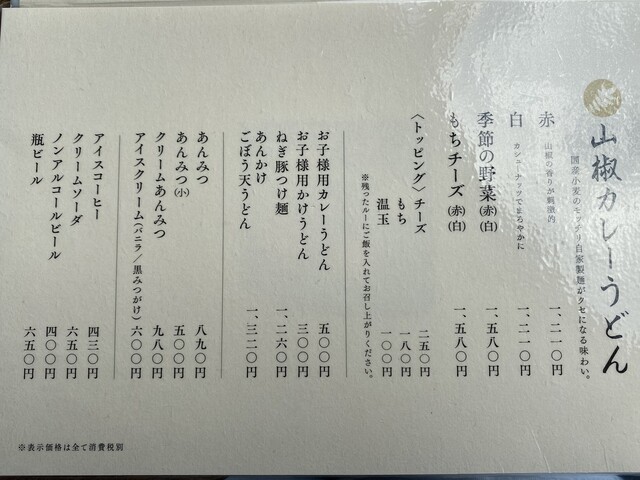 山椒カレーうどん
国産小麦のモッチリ自家製麺がクセになる味わい。
赤 山椒の香りが刺激的 一、二一〇円
白 カシューナッツでまろやかに 一、二一〇円
季節の野菜(赤)(白) 一、五八〇円
もちチーズ(赤)(白) 一、五八〇円
〈トッピング〉チーズ 二五〇円
もち 一八〇円
温玉 一〇〇円
※残ったルーにご飯を入れてお召し上がりください。
お子様用カレーうどん 五〇〇円
お子様用かけうどん 三〇〇円
ねぎ豚つけ麺 一、二六〇円
あんかけ
ごぼう天うどん 一、三二〇円
あんみつ 八九〇円
あんみつ(小) 五〇〇円
クリームあんみつ 九八〇円
アイスクリーム(バニラ/黒みつがけ) 六〇〇円
アイスコーヒー 四三〇円
クリームソーダ 六五〇円
ノンアルコールビール 四〇〇円
瓶ビール 六五〇円
※表示価格は全て消費税別